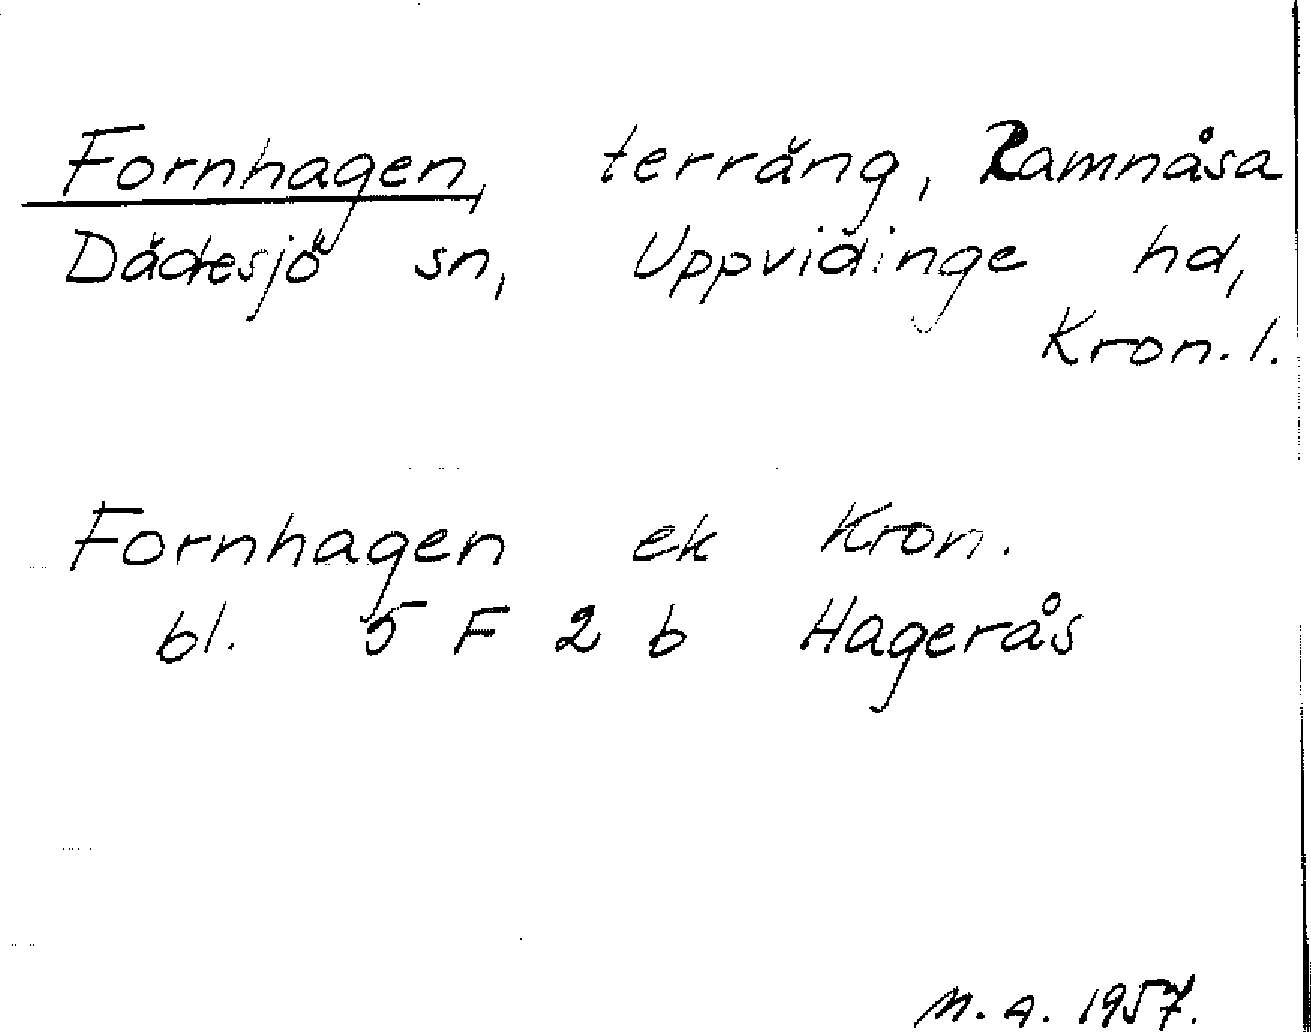 Fornhagen, terräng, Ramnåsa
Dädesjö sn, Uppvidinge hd,
Kron. l.
Fornhagen ek Kron.
bl. 5 F 2 b Hagerås
M. A. 1957.